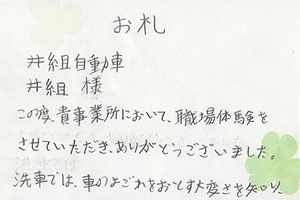 お札
井組自動車
井組 様
この度、貴事業所において、職場体験を
させていただき、ありがとうございました。
洗車では、車のよごれをおとす大変さを知り、